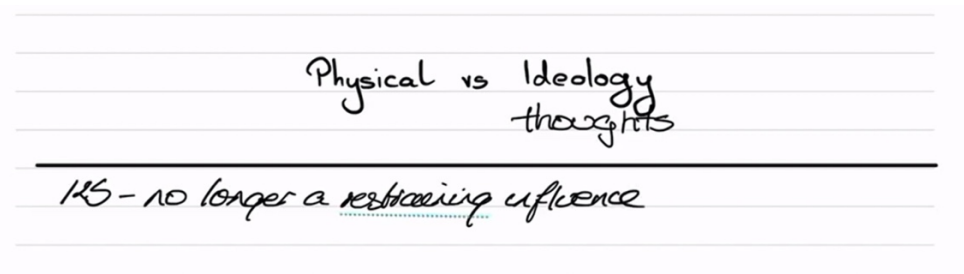 Physical vs Ideology
thoughts
- no longer a restraining influence